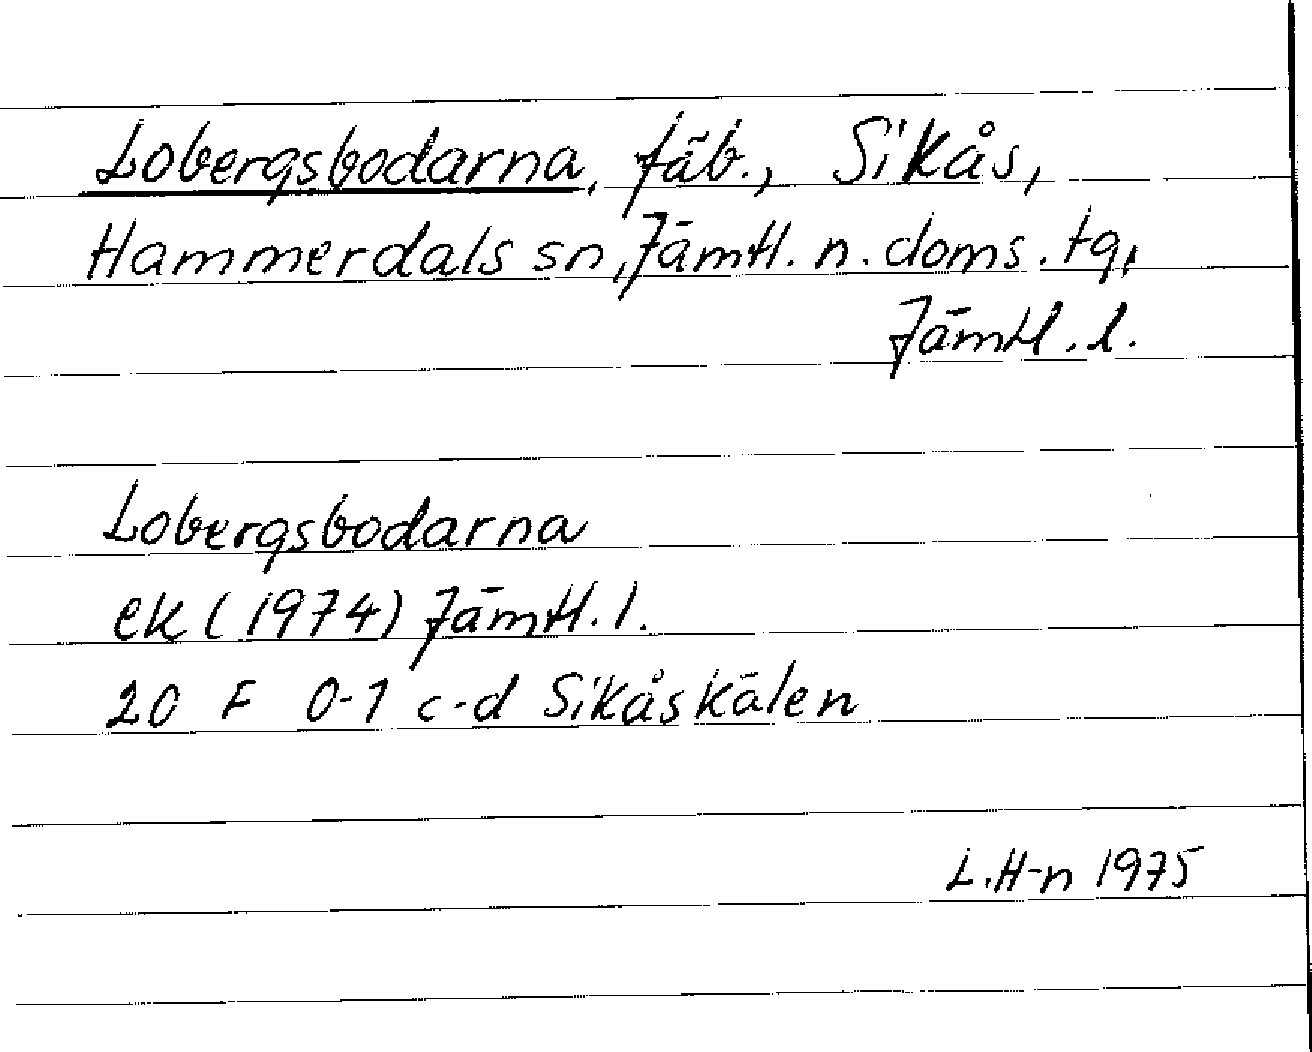 Lobergsbodarna, fäb., Sikås,
Hammerdals sn, Jämtl. n. doms. tg,
Jämtl. l.
Lobergsbodarna
ek (1974) Jämtl. l.
20 F 0-1 c-d Sikåskälen
L.H-n 1975